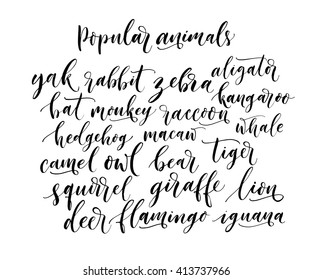 Popular animals
yak rabbit zebra aligator
bat monkey raccoon kangaroo
hedgehog macaw whale
camel owl bear tiger
squirrel giraffe lion
deer flamingo iguana
shutterstock.com · 413737966